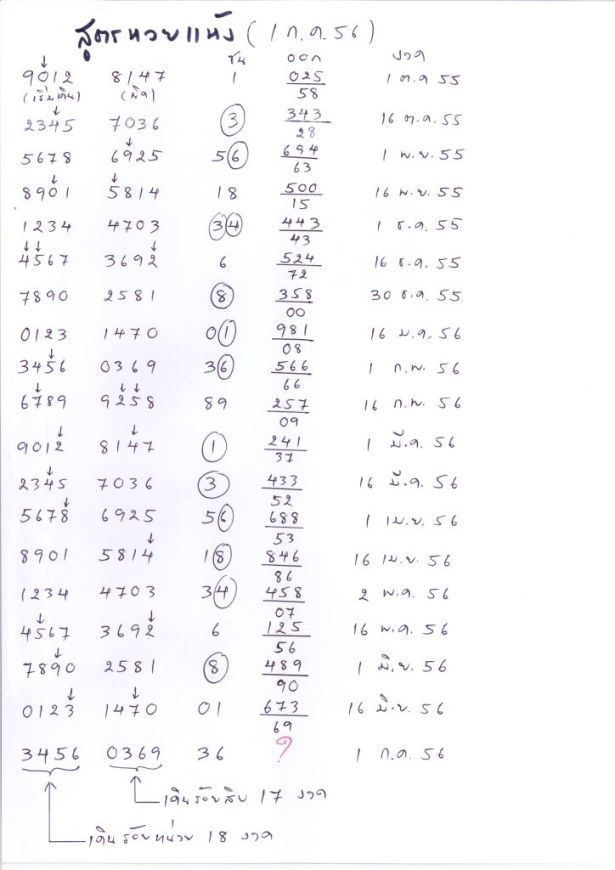 สูตรหวยแห้ง (1 ก.ค.56)
ชน ออก งวด
9012 8147 1 025 1 ต.ค 55
(เริ่มต้น) 58
2345 7036 3 343 16 ต.ค. 55
28
5678 6925 56 694 1 พ.ย. 55
63
8901 5814 18 500 16 พ.ย. 55
15
1234 4703 34 443 1 ธ.ค. 55
43
4567 3692 6 524 16 ธ.ค. 55
72
7890 2581 8 358 30 ธ.ค. 55
00
0123 1470 01 981 16 ม.ค. 56
08
3456 0369 36 566 1 ก.พ. 56
66
6789 9258 89 257 16 ก.พ. 56
09
9012 8147 1 241 1 มี.ค. 56
37
2345 7036 3 433 16 มี.ค. 56
52
5678 6925 56 688 1 เม.ย. 56
53
8901 5814 18 846 16 เม.ย. 56
86
1234 4703 34 458 2 พ.ค. 56
07
4567 3692 6 125 16 พ.ค. 56
56
7890 2581 8 489 1 มิ.ย. 56
90
0123 1470 01 673 16 มิ.ย. 56
69
3456 0369 36 ? 1 ก.ค. 56
เดินร้อยสิบ 17 งวด
เดินร้อยหน่วย 18 งวด